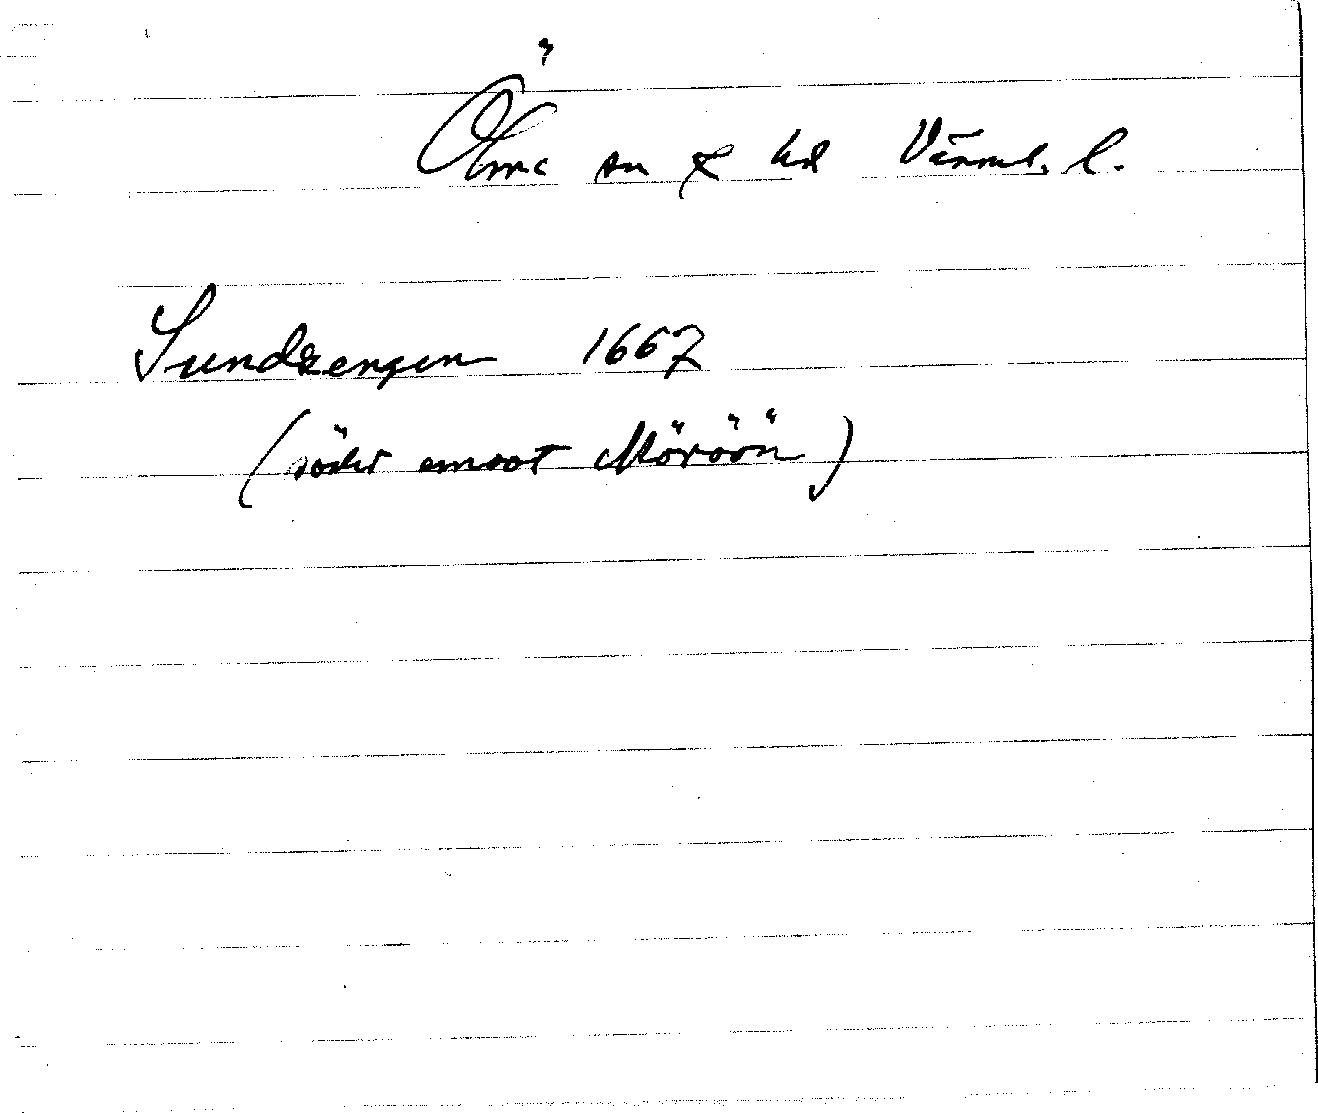 Ölme sn & hd Värml. l.
Sundzengen 1667
(söder emoot Möröön)